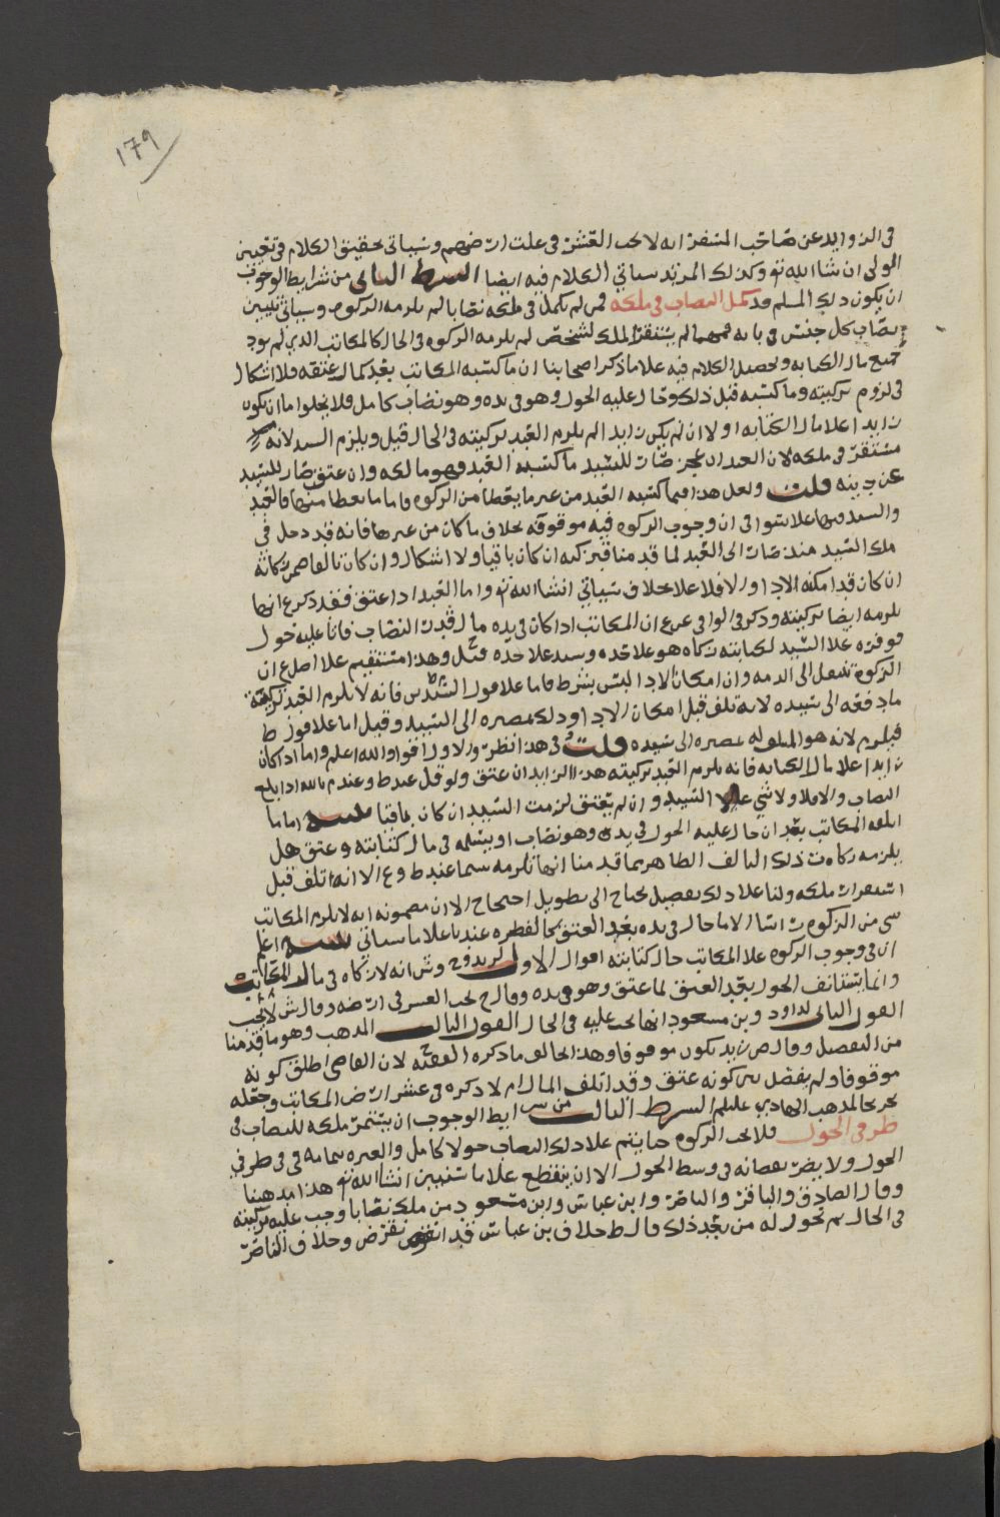 ١٧٩
في الزوايد عن صاحب المسفر انه لا يجب العشر في غلت ارضهم وسياتي تحقيق الكلام في تعيين
المولى ان شا الله تع وكذلك المرتد سياتي الكلام فيه ايضا الشرط الثاني من شرايط الوجوب
ان يكون ذلك المسلم قد كمل النصاب في ملكه فمن لم يكمل في ملكه نصابا لم يلزمه الزكوه وسياتي تبيين
نصاب كل جنس في بابه فمهما لم يستقر الملك لشخص لم يلزمه الزكوه في الحال كالمكاتب الذي لم يود
جميع مال الكتابه وتحصيل الكلام فيه علا ما ذكر اصحابنا ان ما كتسبه المكاتب بعد كمال عتقه فلا اشكال
في لزوم تزكيته وما كتسبه قبل ذلك وحال عليه الحول وهو في يده وهو نصاب كامل فلا يخلوا ما ان يكون
زايدا علا مال الكتابه او لا ان لم يكن زايدا لم يلزم العبد تزكيته في الحال قيل ويلزم السيد لانه
مستقر في ملكه لان العبد ان عجز صار للسيد ما كتسبه العبد فهو مالكه وان عتق صار للسيد
عن دينه قلت ولعل هذا فيما كتسبه العبد من غير ما يعطا من الزكوه واما ما يعطا منها فالعبد
والسيد فيها علا سوا في ان وجوب الزكوه فيه موقوفه بخلاف ما كان من غيرها فانه قد دخل في
ملك السيد منذ صار الى العبد لما قدمنا فيزكيه ان كان باقيا ولا اشكال وان كان تالفا ضمن زكاته
ان كان قد امكنه الادا والا فلا علا خلاف سياتي انشا الله تع واما العبد اذا عتق فقد ذكر ع انها
يلزمه ايضا تزكيته وذكر في الوافي عن ع ان المكاتب اذا كان في يده مال قدر النصاب فاتا عليه حول
فوفره علا السيد لكتابته زكاه هو علا حده وسيده علا حده قيل وهذا مستقيم علا اصل ع ان
الزكوه تنتقل الى الذمه وان امكان الادا ليس بشرط فاما علا قول السيدين فانه لا يلزم العبد تزكية
ما دفعه الى سيده لانه تلف قبل امكان الادا وذلك بمصيره الى السيد وقيل اما علا قول ط
فيلزم لانه هو المتلف له بمصيره الى سيده قلت وفي هذا نظر والاول اقوا والله اعلم واما اذا كان
زايدا علا مال الكتابه فانه يلزم العبد تزكيته هذا الزايد ان عتق ولو قل عند ط وعند م بالله اذا بلغ
النصاب والا فلا ولا شي علا السيد وان لم يعتق لزمت السيد ان كان باقيا تنبيه اما ما
اتلفه المكاتب بعد ان حال عليه الحول في يده وهو نصاب او يسلمه في مال كتابته وعتق هل
يلزمه زكاة ذلك التالف الظاهر بما قدمنا انها تلزمه سيما عند ط وع الا انه اتلف قبل
استقرار ملكه ولنا علا ذلك تفصيل يحتاج الى تطويل احتجاج الا ان مضمونه انه لا يلزم المكاتب
شي من الزكوه راسا الا ما حال في يده بعد العتق بخالفطره عندنا علا ما سياتي تنبيه اعلم
ان في وجوب الزكوه علا المكاتب حال كتابته اقوال الاول لزيد وح وش انه لا زكاه في مال المكاتب
وانما يستانف الحول بعد العتق لما عتق وهو في يده وقال ح يجب العشر في ارضه وقال ش لا يجب
القول الثاني لداود وبن مسعود انها تجب عليه في الحال القول الثالث المذهب وهو ما قدمنا
من التفصيل وقال ص زيد يكون موقوفا وهذا الحالف ما ذكره الفقيه لان القاضي اطلق كونه
موقوفا ولم يفصل بين كونه عتق وقد اتلف المال ام لا ذكره في عشر ارض المكاتب وجعله
تخريجا لمذهب الهادي عليلم الشرط الثالث من شرايط الوجوب ان يستمر ملكه للنصاب في
طرفي الحول فلا تجب الزكوه حتا يتم علا ذلك النصاب حولا كامل والعبره بتمامه في طرفي
الحول ولا يضر نقصانه في وسط الحول الا ان ينقطع علا ما سنبين انشا الله تع هذا مذهبنا
وقال الصادق والباقر والناصر وابن عباس وابن مسعود من ملك نصابا وجب عليه تزكيته
في الحال ثم تحول له من بعد ذلك قال ط خلاف بن عباس قد انقرض وخلاف الناصر